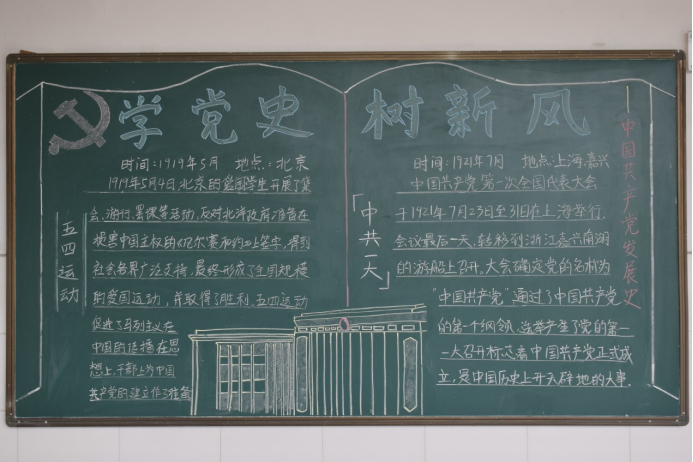 学党史 树新风
时间:1919年5月 地点:北京
1919年5月4日,北京的爱国学生开展了集
会、游行、罢课等活动,反对北洋政府准备在
损害中国主权的《凡尔赛和约》上签字,得到
社会各界广泛支持,最终形成了全国规模
的爱国运动,并取得了胜利.五四运动
促进了马列主义在
中国的传播在思
想上,干部上为中国
共产党的建立作了准备
五四运动
时间:1921年7月 地点:上海,嘉兴
中国共产党第一次全国代表大会
于1921年7月23日至31日在上海举行.
会议最后一天,转移到浙江嘉兴南湖
的游船上召开.大会确定党的名称为
“中国共产党”通过了中国共产党
的第一个纲领,选举产生了党的第一
一大召开标志着中国共产党正式成
立,是中国历史上开天辟地的大事.
「中共一大」
中国共产党发展史